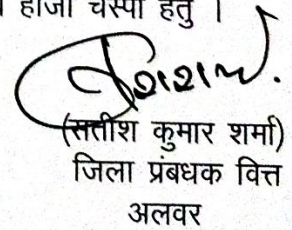 हाजा चस्पा हेतु ।
(सतीश कुमार शर्मा)
जिला प्रंबधक वित्त
अलवर